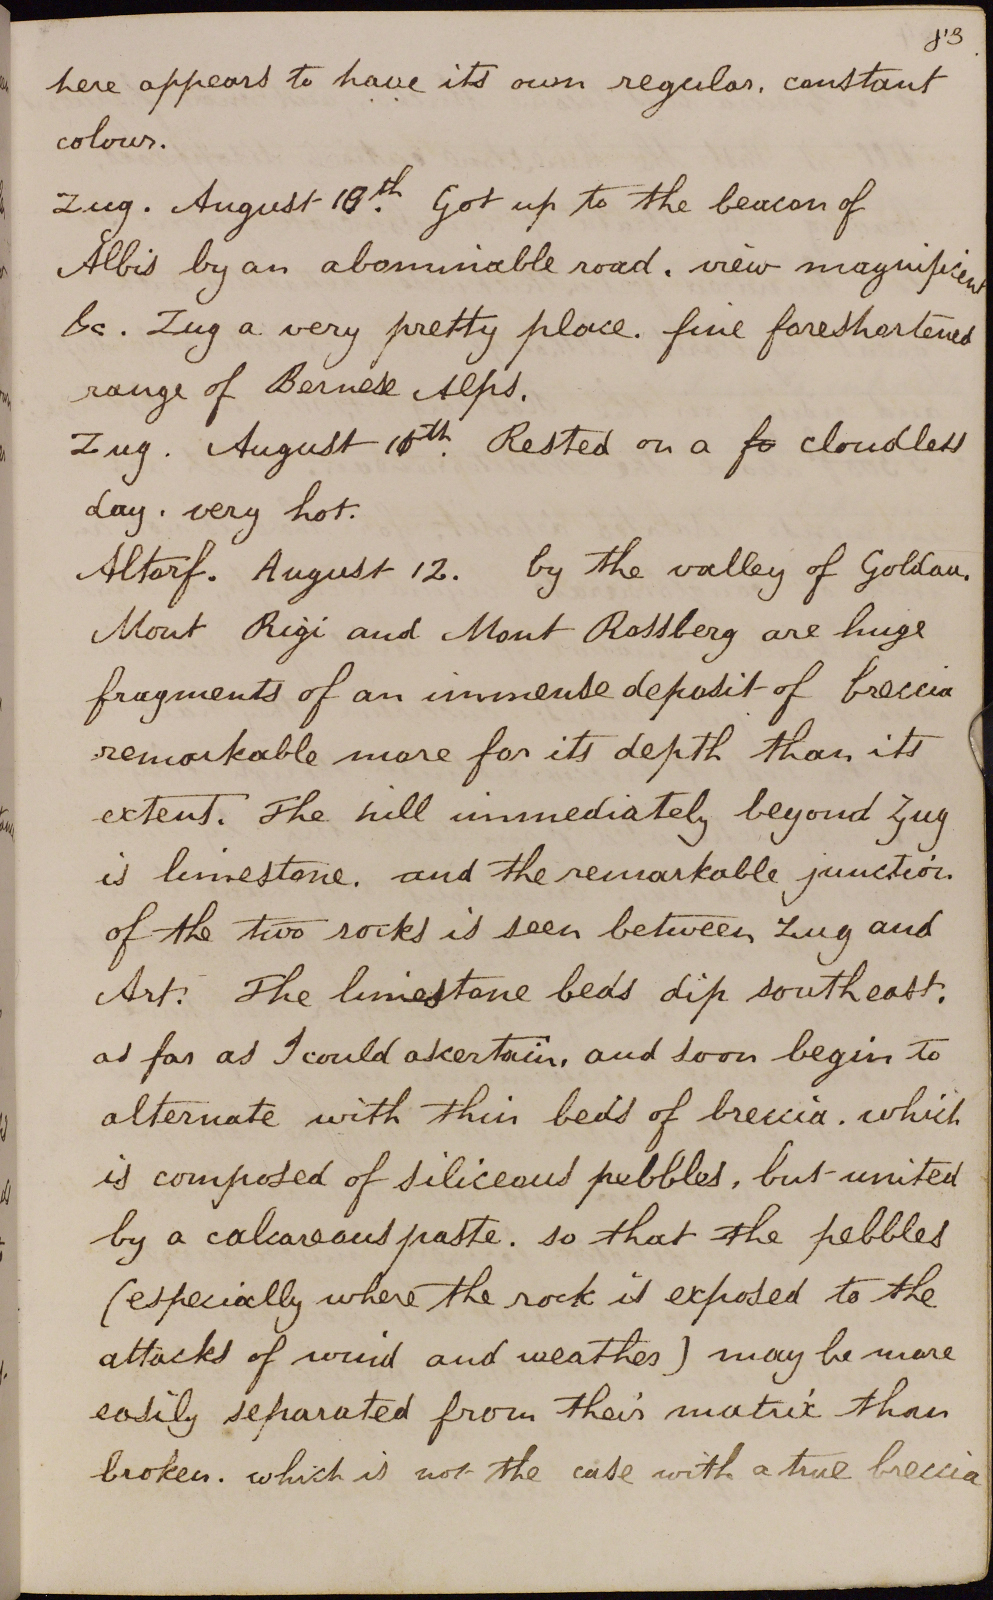 83
here appears to have its own regular. constant
colour.
Zug. August 10th. Got up to the beacon of
Albis by an abominable road. view magnificent
&c. Zug a very pretty place. fine foreshortened
range of Bernese Alps.
Zug. August 10th. Rested on a fo cloudless
day. very hot.
Altorf. August 12. by the valley of Goldau.
Mont Rigi and Mont Rossberg are huge
fragments of an immense deposit of breccia
remarkable more for its depth than its
extent. The hill immediately beyond Zug
is limestone. and the remarkable junction
of the two rocks is seen between Zug and
Art. The limestone beds dip southeast.
as far as I could ascertain, and soon begin to
alternate with thin beds of breccia. which
is composed of siliceous pebbles, but united
by a calcareous paste. so that the pebbles
(especially where the rock is exposed to the
attacks of wind and weather) may be more
easily separated from their matrix than
broken. which is not the case with a true breccia